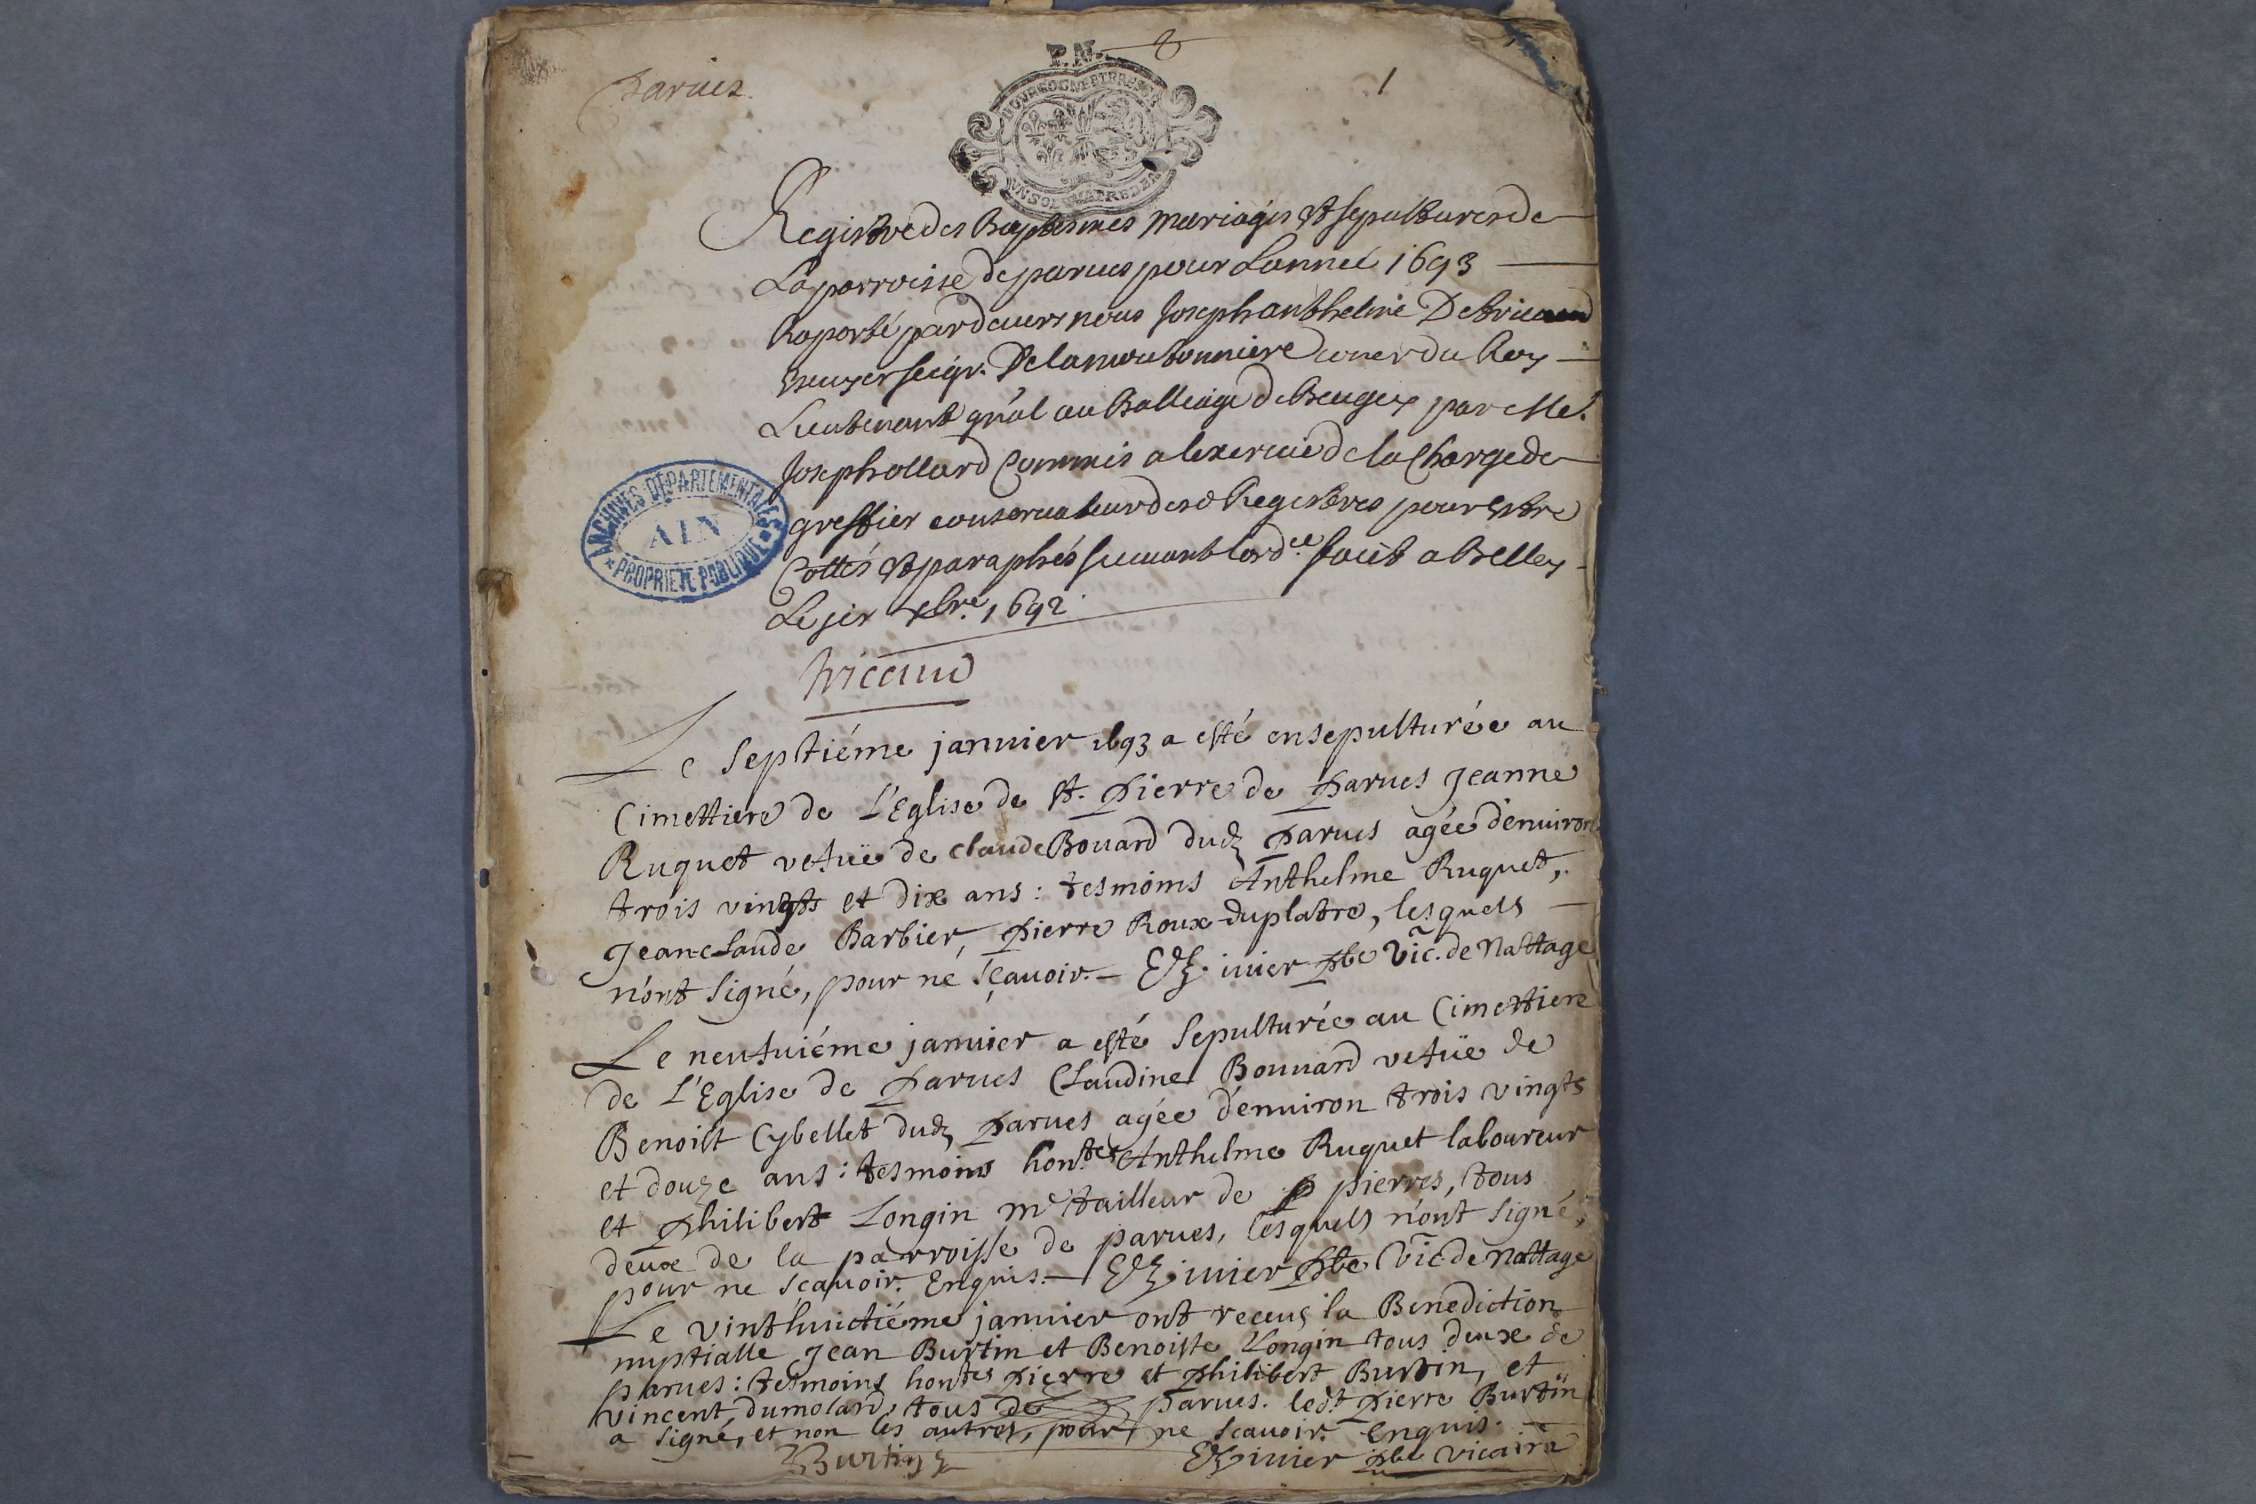 Parues
P.N.
1
BOVRGOGNE ET BRESSE
VN SOL QUATRE DEN
Registre des Baptesmes Mariages et sepultures de
La parroisse de parues pour Lannée 1693
Raporté pardeuers nous Joseph anthelme De tricaud
Escuyer seigr. De lamoutonniere coner du Roy
Lieutenant gnãl au Balliage de Beugey par Me.
Joseph ollard Commis a lexercice de la Charge de
greffier conseruateur desd Registres pour estre
Cottés et paraphés suiuant lord.ce fait a Belley
Le jer xbre. 1692
tricaud
ARCHIVES DÉPARTEMENTALES
AIN
PROPRIÉTÉ PUBLIQUE
Le septiéme januier 1693 a esté ensepulturée au
Cimettiere de L'Eglise de St. Pierre de Parues Jeanne
Ruquet vefuë de claude Bouard dud Parues agée d'enuiron
trois vingts et dix ans : tesmoins Anthelme Ruquet,
Jeanclaude Barbier, Pierre Roux duplatre, lesquels
n'ont signé, pour ne sçauoir. — inier Pbe Vic. de Nattage
Le neufuiéme januier a esté sepulturée au Cimettiere
de L'Eglise de Parues Claudine Bouuard vefuë de
Benoist Cybellet dud Parues agée d'enuiron trois vingts
et douze ans : tesmoins hontes Anthelme Ruquet laboureur
et Philibert Longin me tailleur de pierres, tous
deux de la parroisse de parues, lesquels n'ont signé,
pour ne sçauoir. Enquis. — inier Pbe Vic de Nattage
Le vinthuictiéme januier ont receus la Benediction
nuptialle Jean Burtin et Benoiste Longin tous deux de
parues : tesmoins hontes Pierre et Philibert Burtin, et
vincent dumolard, tous de parues. ledt Pierre Burtin
a signé, et non les autres, pour ne scauoir. Enquis.
PBurtin inier Pbe vicaire